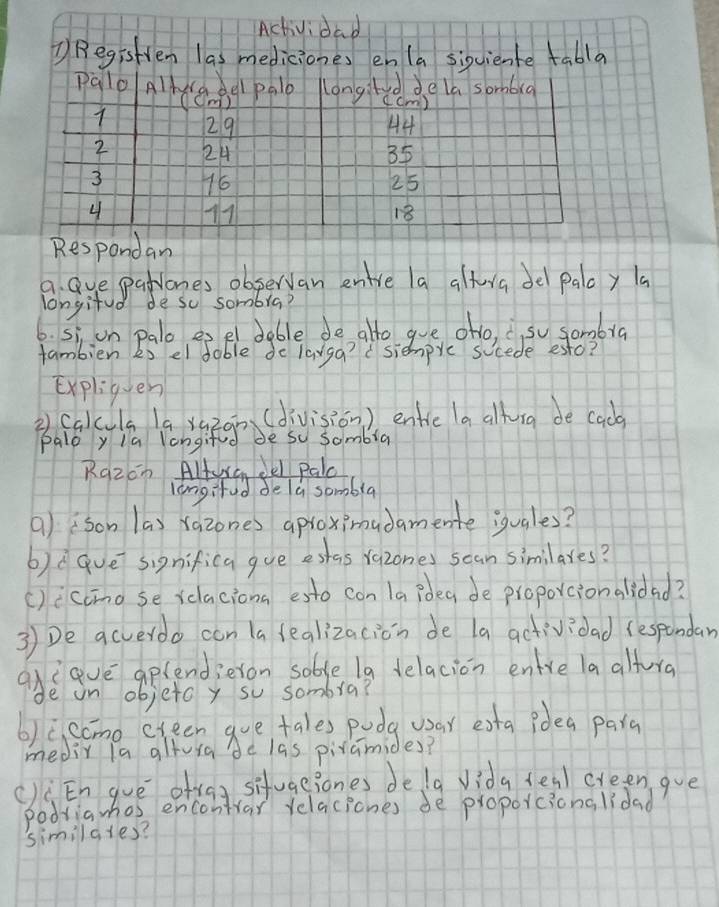 Actividad
1) Registren las mediciones en la siguiente tabla
Palo Altura del palo (cm) longitud de la sombra (cm)
1 29 44
2 24 35
3 16 25
4 11 18
Respondan
a. Que patrones observan entre la altura del palo y la
longitud de su sombra?
b. si un palo es el doble de alto que otro, ¿su sombra
tambien es el doble de larga? ¿ siempre sucede esto?
Expliquen
2) Calcula la razón (división) entre la altura de cada
palo y la longitud de su sombra
Razón Altura del palo
longitud de la sombra
a) ¿son las razones aproximadamente iguales?
b) ¿ qué significa que estas razones sean similares?
c) ¿cómo se relaciona esto con la idea de proporcionalidad?
3) De acuerdo con la realización de la actividad respondan
a) ¿qué aprendieron sobre la relación entre la altura
de un objeto y su sombra?
b) ¿cómo creen que tales pudo usar esta idea para
medir la altura de las pirámides?
c) ¿En qué otras situaciones de la vida real creen que
podriamos encontrar relaciones de proporcionalidad
similares?